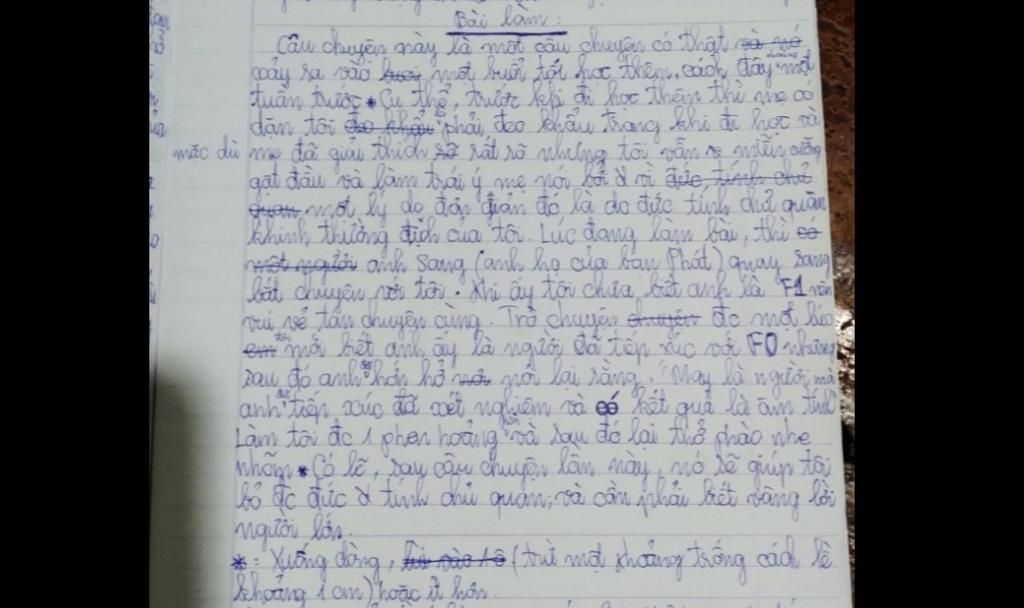 Bài làm:
Câu chuyện này là một câu chuyện có thật và nó
xảy ra vào buổi một buổi tối học thêm, cách đây một
tuần trước * Cụ thể, trước khi đi học thêm thì mẹ có
dặn tôi đeo khẩu phải đeo khẩu trang khi đi học và
mặc dù mẹ đã giải thích rõ rất rõ nhưng tôi vẫn miễn cưỡng
gật đầu và làm trái ý mẹ nói bởi vì đức tính chủ
quan một lý do đơn giản đó là do đức tính chủ quan
khinh thường địch của tôi. Lúc đang làm bài, thì có
một người anh Sang (anh họ của bạn Phát) quay sang
bắt chuyện với tôi. Khi ấy tôi chưa biết anh là F1 nên
vui vẻ tán chuyện cùng. Trò chuyện chuyện đc một lúc
em tôi mới biết anh ấy là người đã tiếp xúc với F0 nhưng
sau đó anh ấy hớn hở nói lại rằng. "May là người mà
anh tiếp xúc đã xét nghiệm và có kết quả là âm tính"
Làm tôi đc 1 phen hoảng hồn và sau đó lại thở phào nhẹ
nhõm * Có lẽ, sau câu chuyện lần này, nó sẽ giúp tôi
bỏ đc đức tính chủ quan, và cần phải biết vâng lời
người lớn.
*: Xuống dòng, lùi vào 1 ô (trừ một khoảng trống cách lề
khoảng 1 cm) hoặc ít hơn.